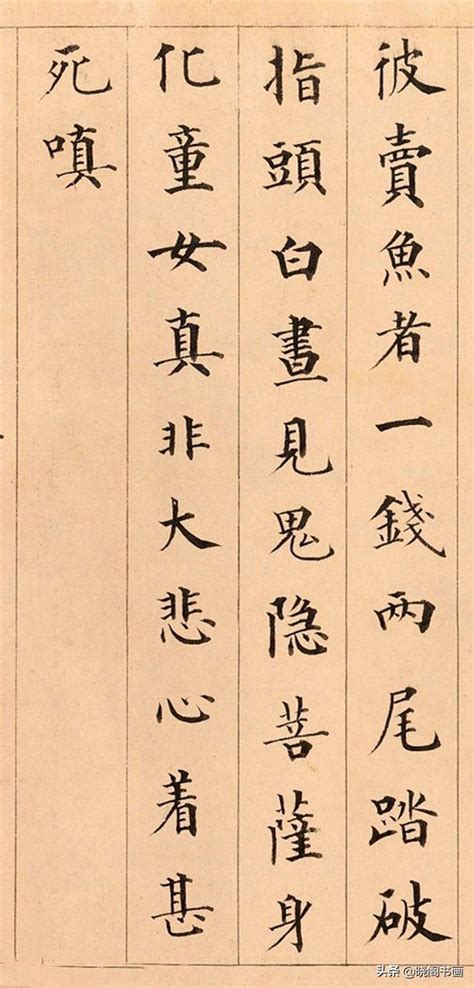 彼賣魚者一錢两尾踏破
指頭白晝見鬼隐菩薩身
化童女真非大悲心着甚
死嗔
头条 @晓阁书画